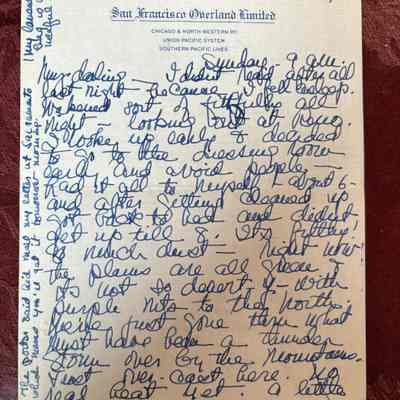 San Francisco Overland Limited
CHICAGO & NORTH WESTERN RY.
UNION PACIFIC SYSTEM
SOUTHERN PACIFIC LINES
Sunday - 9 a.m.
My darling - I didn't read after all
last night - because I fell asleep.
sort of fitfully all
night - looking out at
I woke up early & decided
to go to the dressing room
early and avoid people -
had it all to myself - about 6 -
and after getting cleaned up
got back to bed and didn't
get up till 8. It's
so much dust - right now
the plains are all green &
it's not so desert y - with
purple hits to the North.
We've just gone thru what
must have been a thunder
storm over by the mountains.
Just over-cast here. No
real heat yet. a little
The porter said he'd my letter at Sacramento
which means you'll get it tomorrow morning